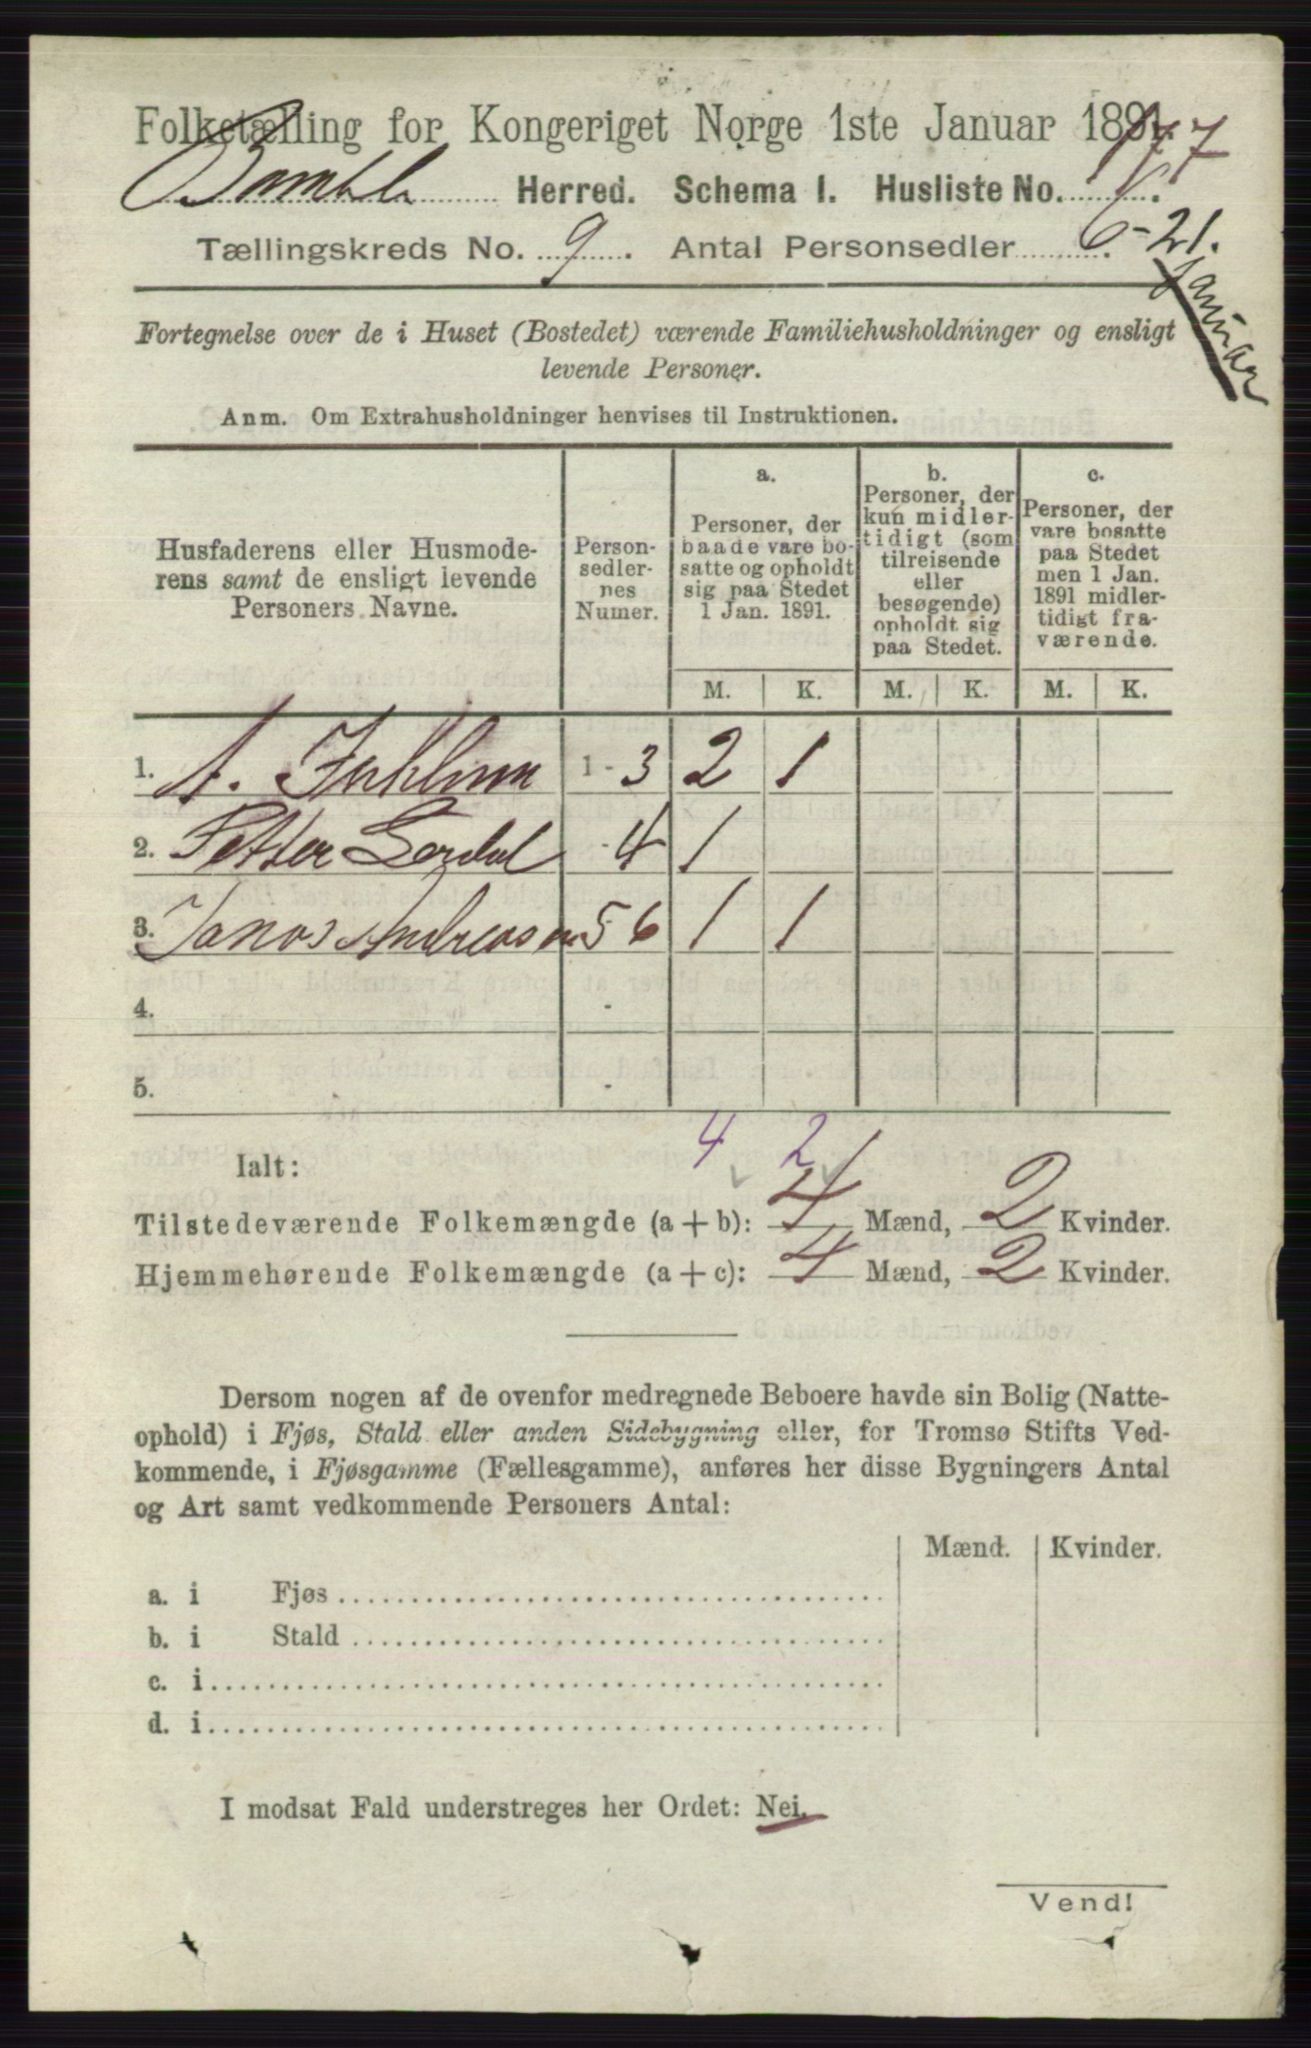 Folketælling for Kongeriget Norge 1ste Januar 1891.
177
Bamble Herred. Schema I. Husliste No.
Tællingskreds No. 9. Antal Personsedler 6-21.
Januar
Fortegnelse over de i Huset (Bostedet) værende Familiehusholdninger og ensligt
levende Personer.
Anm. Om Extrahusholdninger henvises til Instruktionen.
Husfaderens eller Husmode-
rens samt de ensligt levende
Personers Navne.
Person-
sedler-
nes
Numer.
a.
Personer, der
baade vare bo-
satte og opholdt
sig paa Stedet
1 Jan. 1891.
b.
Personer, der
kun midler-
tidigt (som
tilreisende
eller
besøgende)
opholdt sig
paa Stedet.
c.
Personer, der
vare bosatte
paa Stedet
men 1 Jan.
1891 midler-
tidigt fra-
værende.
M. K. M. K. M. K.
1. A. 1-3 2 1
2. Petter - 4 1
3. Janos Andreasen 5-6 1 1
4. -
5. -
4 2
Ialt:
Tilstedeværende Folkemængde (a + b): 4 Mænd, 2 Kvinder.
Hjemmehørende Folkemængde (a + c): 4 Mænd, 2 Kvinder.
Dersom nogen af de ovenfor medregnede Beboere havde sin Bolig (Natte-
ophold) i Fjøs, Stald eller anden Sidebygning eller, for Tromsø Stifts Ved-
kommende, i Fjøsgamme (Fællesgamme), anføres her disse Bygningers Antal
og Art samt vedkommende Personers Antal:
Mænd. Kvinder.
a. i Fjøs
b. i Stald
c. i
d. i
I modsat Fald understreges her Ordet: Nei.
Vend!